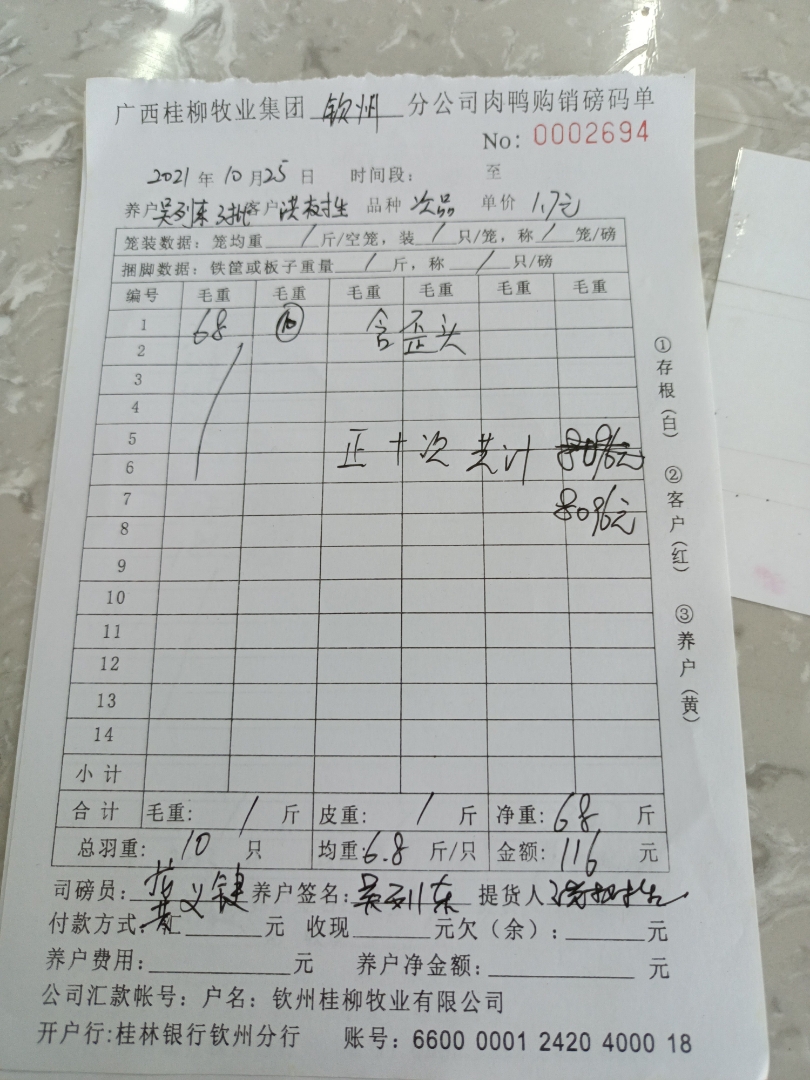 广西桂柳牧业集团 钦州 分公司肉鸭购销磅码单
No: 0002694
2021 年 10 月 25 日 时间段: 至
养户 吴列东 3批 客户 洪树生 品种 次品 单价 1.7元
笼装数据: 笼均重 / 斤/空笼, 装 / 只/笼, 称 / 笼/磅
捆脚数据: 铁筐或板子重量 / 斤, 称 / 只/磅
编号 毛重 毛重 毛重 毛重 毛重 毛重
1 68 10 含歪头
2
3
4
5
6 正+次 共计
7 8096元
8
9
10
11
12
13
14
小计
合计 毛重: / 斤 皮重: / 斤 净重: 68 斤
总羽重: 10 只 均重: 6.8 斤/只 金额: 116 元
司磅员: 义键 养户签名: 吴列东 提货人
付款方式: 汇 元 收现 元欠(余): 元
养户费用: 元 养户净金额: 元
公司汇款帐号: 户名: 钦州桂柳牧业有限公司
开户行:桂林银行钦州分行 账号: 6600 0001 2420 4000 18
①存根(白) ②客户(红) ③养户(黄)